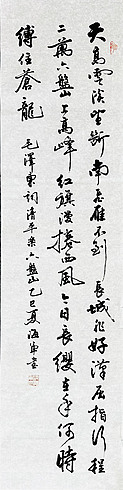 天高雲淡望斷南飛雁不到長城非好漢屈指行程
二萬六盤山上高峰紅旗漫捲西風今日長纓在手何時
縛住蒼龍
毛澤東詞清平樂六盤山乙巳夏海